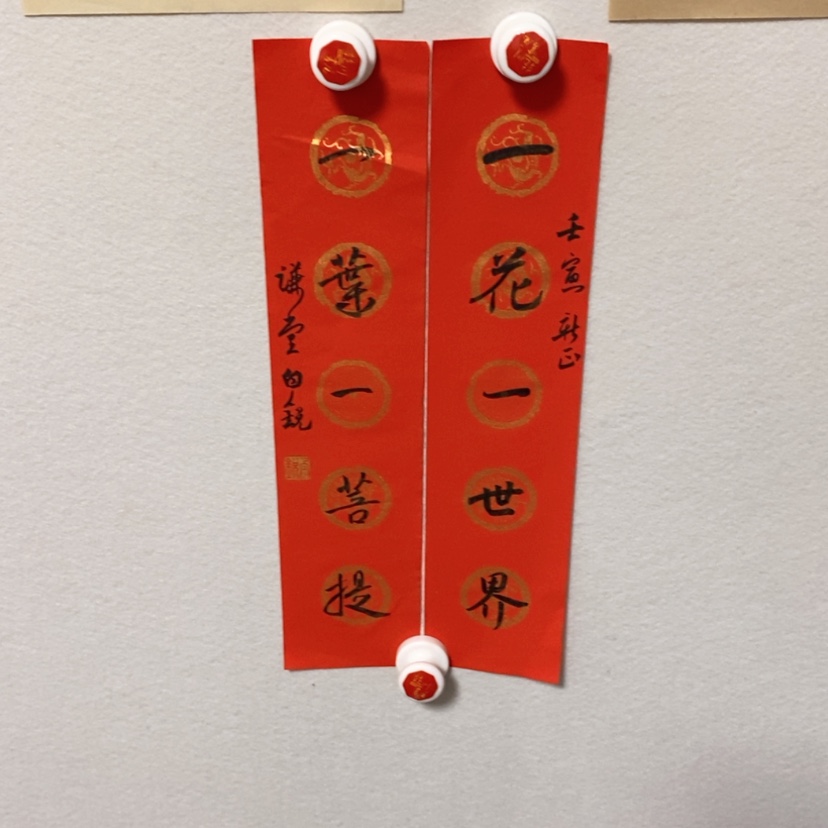 壬寅新正
一花一世界
一葉一菩提
謙堂